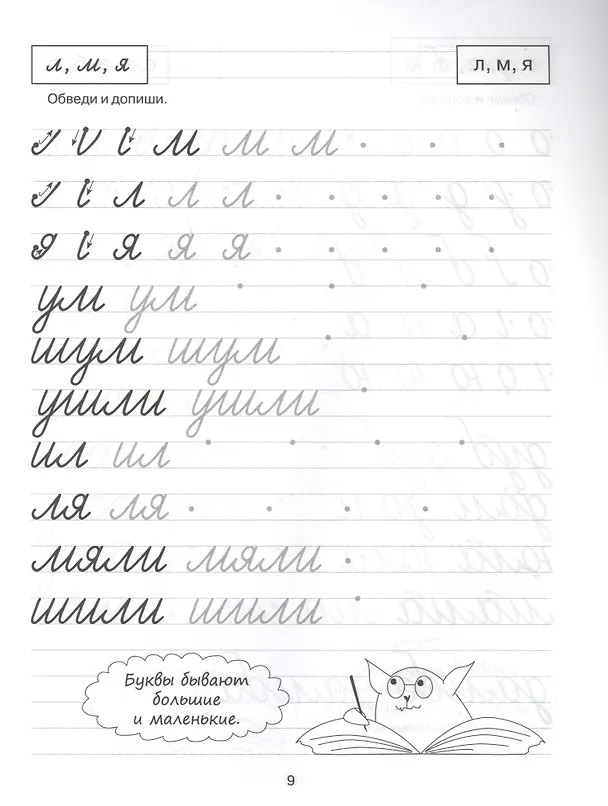 л, м, я
л, м, я
Обведи и допиши.
м м м
л л л
я я я
ум ум
шум шум
ушли ушли
ил ил
ля ля
мяли мяли
шили шили
Буквы бывают
большие
и маленькие.
9